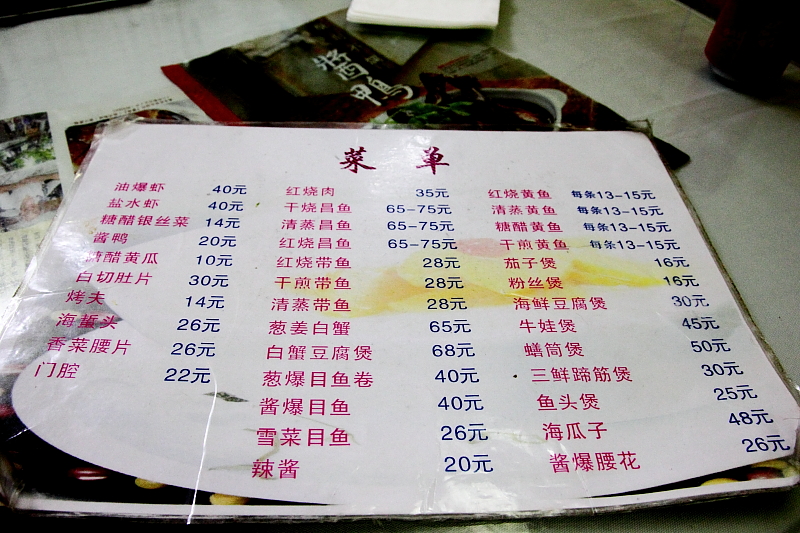 酱鸭
菜单
油爆虾 40元
盐水虾 40元
糖醋银丝菜 14元
酱鸭 20元
糖醋黄瓜 10元
白切肚片 30元
烤夫 14元
海蜇头 26元
香菜腰片 26元
门腔 22元
红烧肉 35元
干烧昌鱼 65-75元
清蒸昌鱼 65-75元
红烧昌鱼 65-75元
红烧带鱼 28元
干煎带鱼 28元
清蒸带鱼 28元
葱姜白蟹 65元
白蟹豆腐煲 68元
葱爆目鱼卷 40元
酱爆目鱼 40元
雪菜目鱼 26元
辣酱 20元
红烧黄鱼 每条13-15元
清蒸黄鱼 每条13-15元
糖醋黄鱼 每条13-15元
干煎黄鱼 每条13-15元
茄子煲 16元
粉丝煲 16元
海鲜豆腐煲 30元
牛娃煲 45元
鳝筒煲 50元
三鲜蹄筋煲 30元
鱼头煲 25元
海瓜子 48元
酱爆腰花 26元